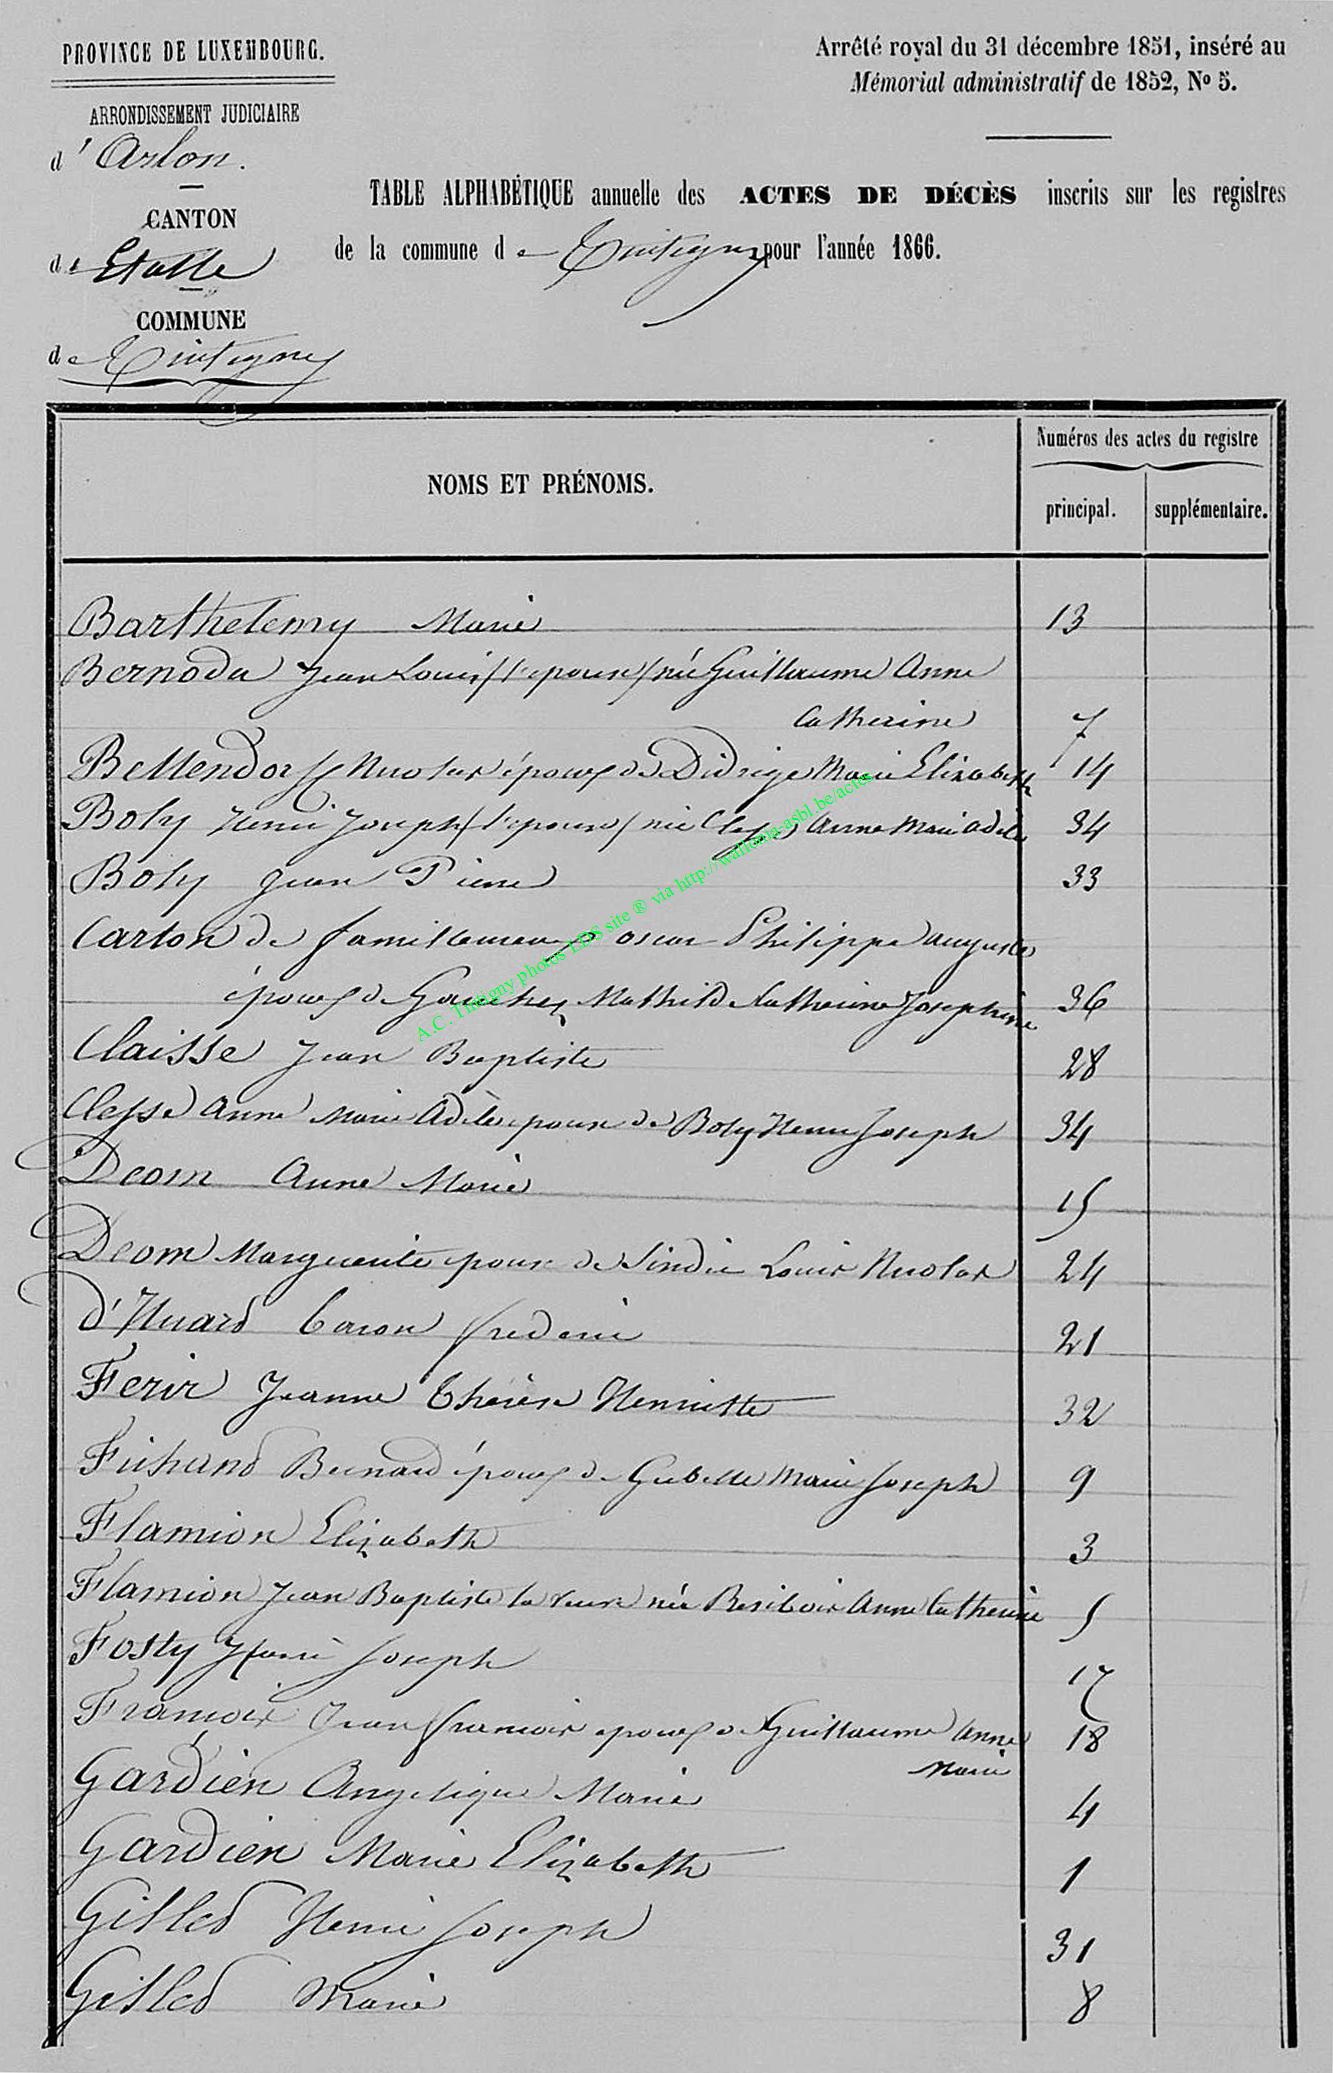 PROVINCE DE LUXEMBOURG.
Arrêté royal du 31 décembre 1851, inséré au
Mémorial administratif de 1852, No 5.
ARRONDISSEMENT JUDICIAIRE
d'Arlon.
CANTON
de Etalle
COMMUNE
de Tintigny
TABLE ALPHABÉTIQUE annuelle des ACTES DE DÉCÈS inscrits sur les registres
de la commune de Tintigny pour l'année 1866.
NOMS ET PRÉNOMS.
Numéros des actes du registre
principal. supplémentaire.
Barthelemy Marie 13
Bernoda Jean Louis (l'epouse) née Guillaume Anne
Catherine 7
Bettendorff Nicolas époux de Didrige Marie Elizabeth 14
Boly Henri Joseph (l'epouse) née Clesse Anne Marie Adele 34
Boly Jean Pierre 33
Carton de Oscar Philippe Auguste
époux de Mathilde Catherine Josephine 36
Claisse Jean Baptiste 28
Clesse Anne Marie Adèle epouse de Boly Henri Joseph 34
Deom Anne Marie 15
Deom Marguerite epouse de Louis Nicolas 24
d'Huard baron frederic 21
Ferir Jeanne Thérèse Henriette 32
Bernard époux de Marie Joseph 9
Flamion Elizabeth 3
Flamion Jean Baptiste la veuve née Anne Catherine 5
Fosty Henri Joseph 17
François Jean françois epoux de Guillaume Anne 18
Marie
Gardien Angelique Marie 4
Gardien Marie Elizabeth 1
Gilles Henri Joseph 31
Gilles Marie 8
A.C. Tintigny photos LDS site ® via http://wallonia-asbl.be/actes